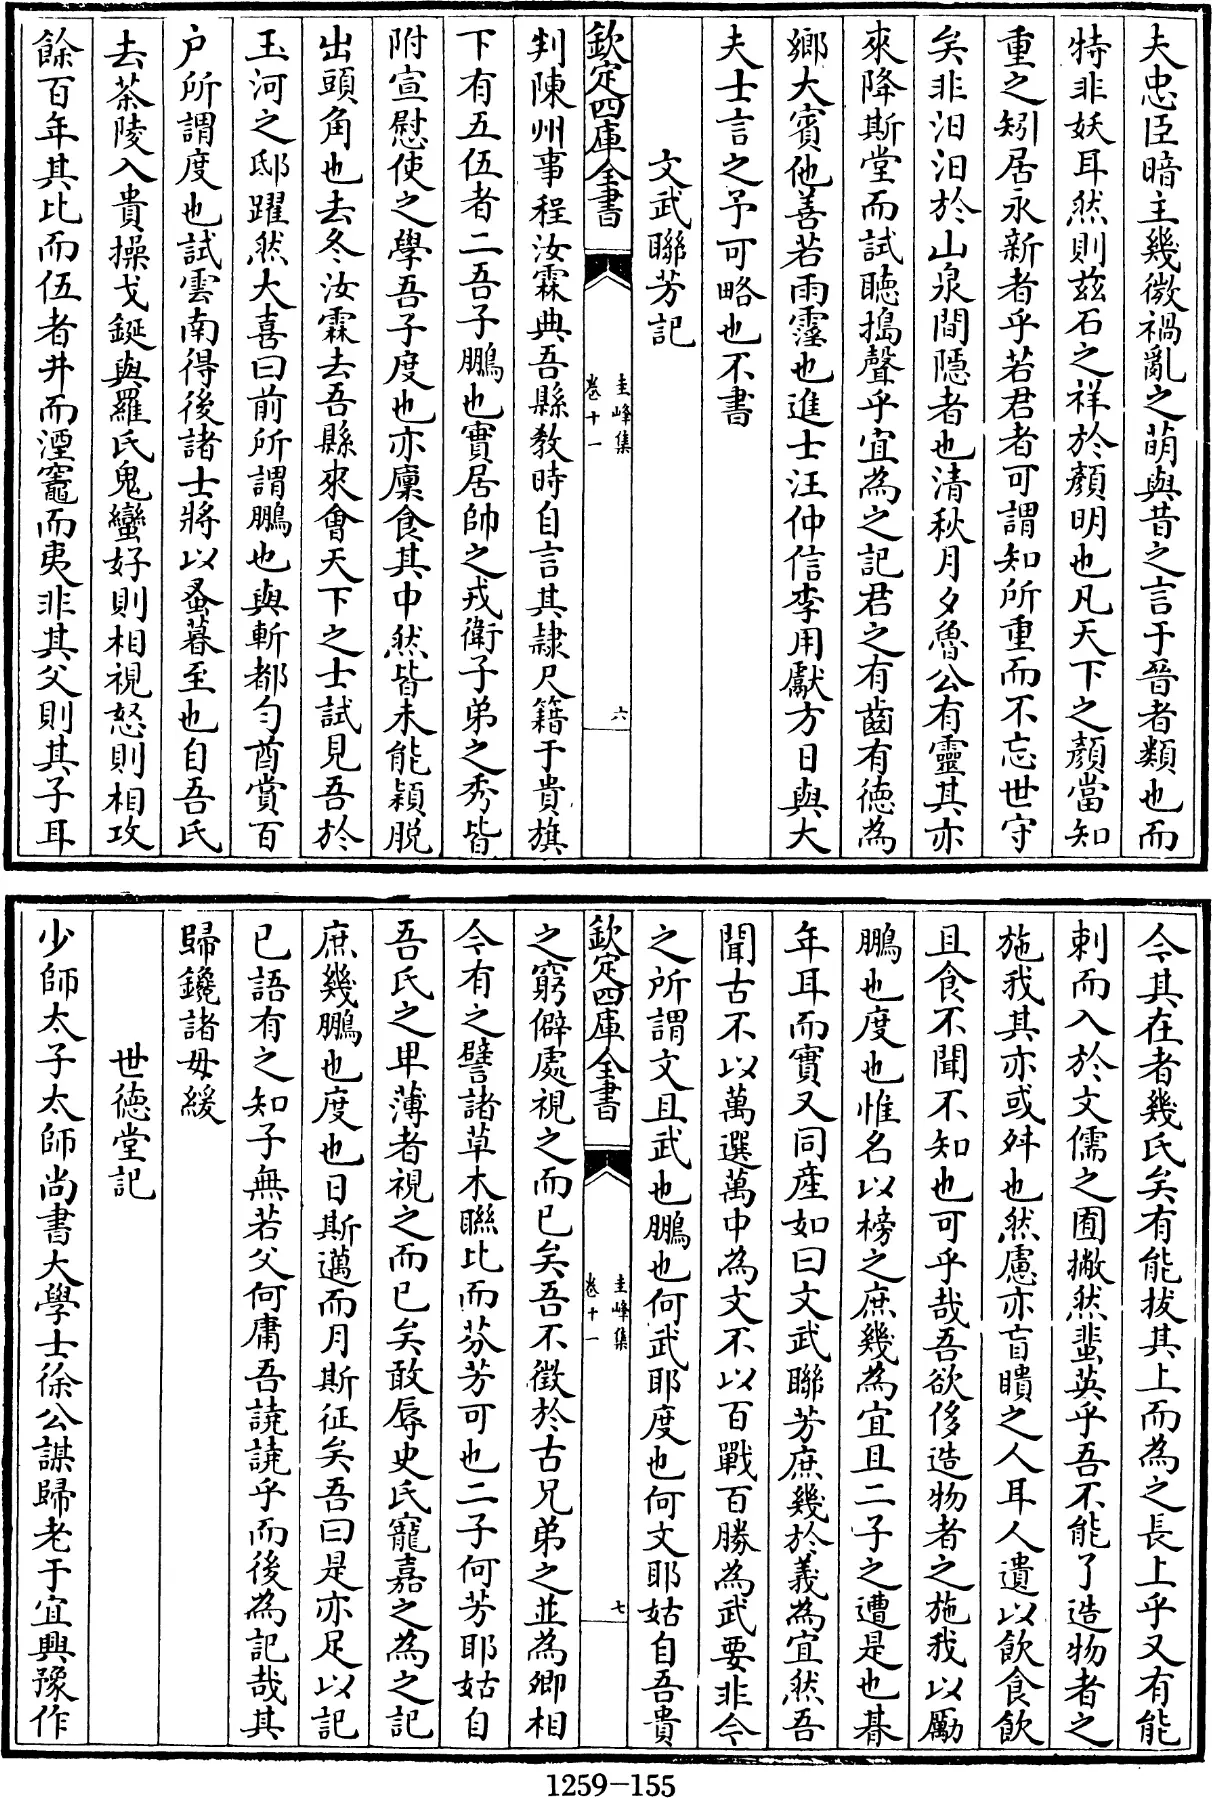 夫忠臣暗主幾微禍亂之萌與昔之言于晉者類也而
特非妖耳然則茲石之祥於顏明也凡天下之顏當知
重之矧居永新者乎若君者可謂知所重而不忘世守
矣非汨汨於山泉間隱者也清秋月夕魯公有靈其亦
來降斯堂而試聽搗聲乎宜為之記君之有齒有德為
鄉大賓他善若雨霪也進士汪仲信李用獻方日與大
夫士言之予可略也不書
文武聯芳記
欽定四庫全書
圭峰集
卷十一
六
判陳州事程汝霖典吾縣教時自言其隷尺籍于貴旗
下有五伍者二吾子鵬也實居帥之戎衛子弟之秀皆
附宣慰使之學吾子度也亦廩食其中然皆未能穎脫
出頭角也去冬汝霖去吾縣來會天下之士試見吾於
玉河之邸躍然大喜曰前所謂鵬也與斬都勻酋賞百
户所謂度也試雲南得後諸士將以蚤暮至也自吾氏
去茶陵入貴操戈鋋與羅氏鬼蠻好則相視怒則相攻
餘百年其比而伍者井而湮竈而夷非其父則其子耳
今其在者幾氏矣有能拔其上而為之長上乎又有能
刺而入於文儒之囿撇然蜚英乎吾不能了造物者之
施我其亦或舛也然慮亦盲瞶之人耳人遺以飲食飲
且食不聞不知也可乎哉吾欲侈造物者之施我以勵
鵬也度也惟名以榜之庶幾為宜且二子之遭是也朞
年耳而實又同産如曰文武聯芳庶幾於義為宜然吾
聞古不以萬選萬中為文不以百戰百勝為武要非今
之所謂文且武也鵬也何武耶度也何文耶姑自吾貴
欽定四庫全書
圭峰集
卷十一
七
之窮僻處視之而已矣吾不徵於古兄弟之並為卿相
今有之譬諸草木聯比而芬芳可也二子何芳耶姑自
吾氏之卑薄者視之而已矣敢辱史氏寵嘉之為之記
庶幾鵬也度也日斯邁而月斯征矣吾曰是亦足以記
已語有之知子無若父何庸吾譊譊乎而後為記哉其
歸鑱諸毋緩
世德堂記
少師太子太師尚書大學士徐公謀歸老于宜興豫作
1259-155